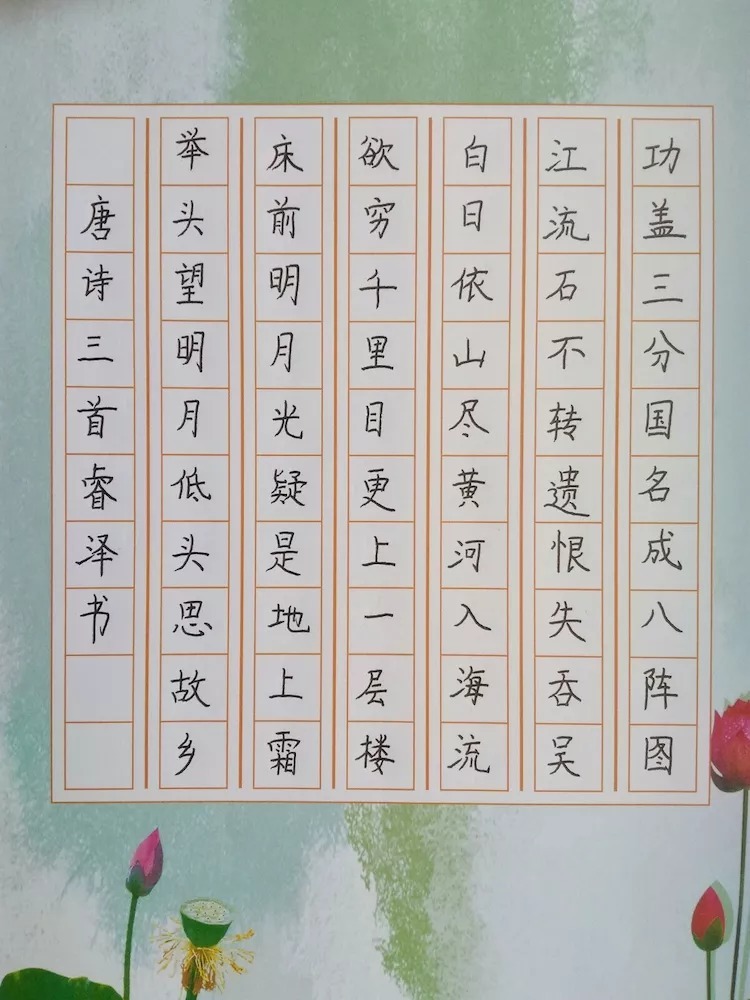 功盖三分国名成八阵图
江流石不转遗恨失吞吴
白日依山尽黄河入海流
欲穷千里目更上一层楼
床前明月光疑是地上霜
举头望明月低头思故乡
唐诗三首睿泽书